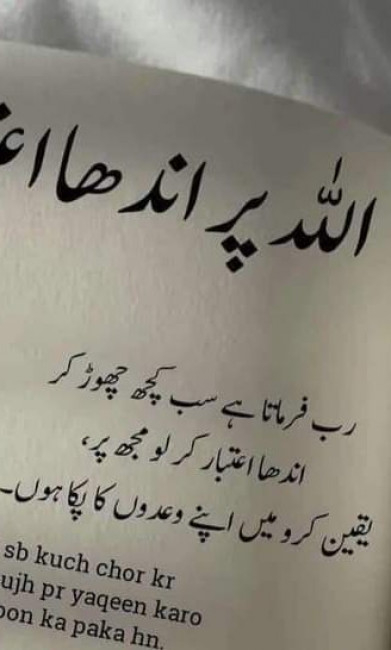 اللہ پر اندھا
رب فرماتا ہے سب کچھ چھوڑ کر
اندھا اعتبار کر لو مجھ پر،
یقین کرو میں اپنے وعدوں کا پکا ہوں۔
sb kuch chor kr
pr yaqeen karo
ka paka hn.